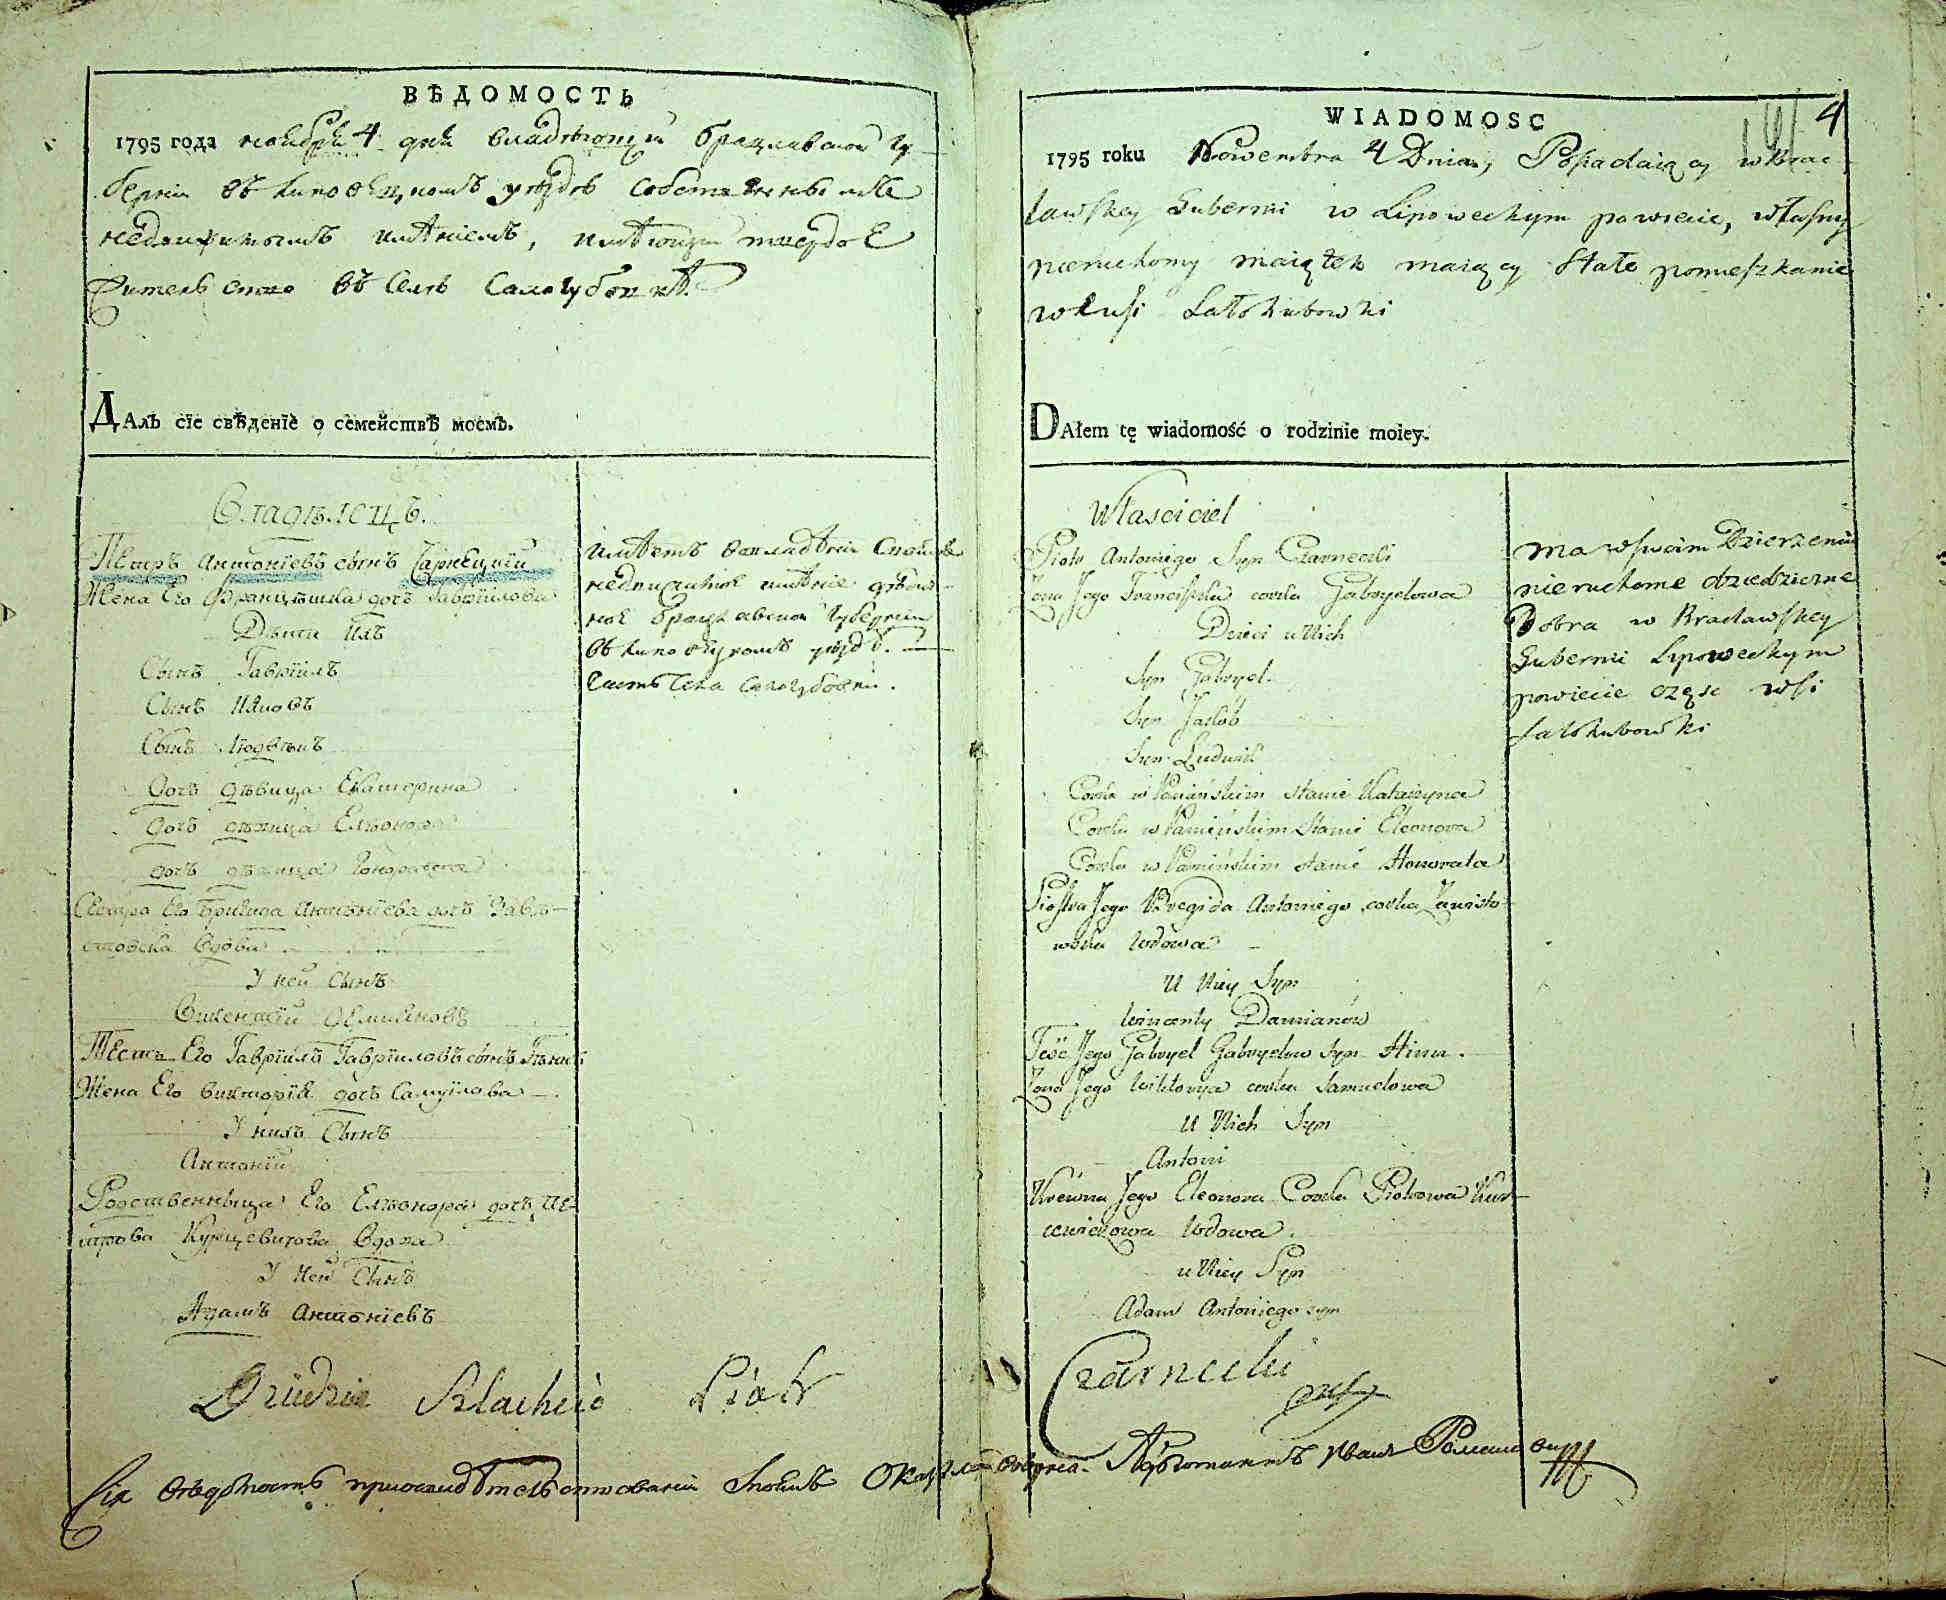 ВѢДОМОСТЬ
1795 года ноября 4 дня владѣющій брацлавской гу
берніи въ липовецкомъ уѣздѣ собственнымъ
недвижимымъ имѣніемъ, имѣющій твердое
жительство въ селѣ Сологубовкѣ
ДАлъ сїе свѣденїе о семействѣ моемъ.
Владѣлецъ.
Петръ Антонїевъ сынъ Чарнецкїй
Жена Его Францышка дочь Гаврїилова
Дѣти ихъ
Сынъ Гаврїилъ
Сынъ Ияковъ
Сынъ Людвикъ
Дочь дѣвица Екатерина
Дочь дѣвица Елѣонора
дочь дѣвица Гонората
Сестра Его Бригида Антонїева дочь
вдова
У ней Сынъ
Викентїй Демияновъ
Тесть Его Гаврїилъ Гаврїиловъ сынъ
Жена Его Викторїя дочь Самуйлова
У нихъ Сынъ
Антонїй
Родственныца Его Елѣонора дочь Пе-
трова Курцевичова Вдова
У ней Сынъ
Адамъ Антонїевъ
имѣетъ во владѣніи своемъ
недвижимое имѣніе
брацлавской губерніи
въ липовецкомъ уѣздѣ.
часть села Сологубовки.
Piotr
Сія вѣдомость
WIADOMOSC
4
1795 roku Nowembra 4 Dnia, Posiadaiący w Brac
ławskey Guberni w Lipoweckym powiecie, własny
nieruchomy maiątek maiący Stałe pomieszkanie
w Wsi Sałohubowki
DAłem tę wiadomość o rodzinie moiey.
Własciciel
Piotr Antoniego Syn Czarnecki
Zona Jego Franciszka corka Gabryelowa
Dzieci u Nich
Syn Gabryel.
Syn Jakób
Syn Ludwik
Corka w Panińskim stanie Katarzyna
Corka w Panińskim Stanie Eleonora
Corka w Panińskim stanie Honorata
Siostra Jego Brygida Antoniego corka Zawisto-
wska Wdowa
U Niey Syn
Wincenty Damianów
Teść Jego Gabryel Gabryelow Syn
Zona Jego Wiktorya corka Samuelowa
U Nich Syn
Antoni
Krewna Jego Eleonora Corka Piotrowa Kur-
cewiczowa Wdowa.
u Niey Syn
Adam Antoniego syn
ma w swoim Dzierzeniu
nieruchome dziedziczne
Dobra w Bracławskey
Guberni Lipoweckym
powiecie częsc wsi
Sałohubowki
Czarnecki